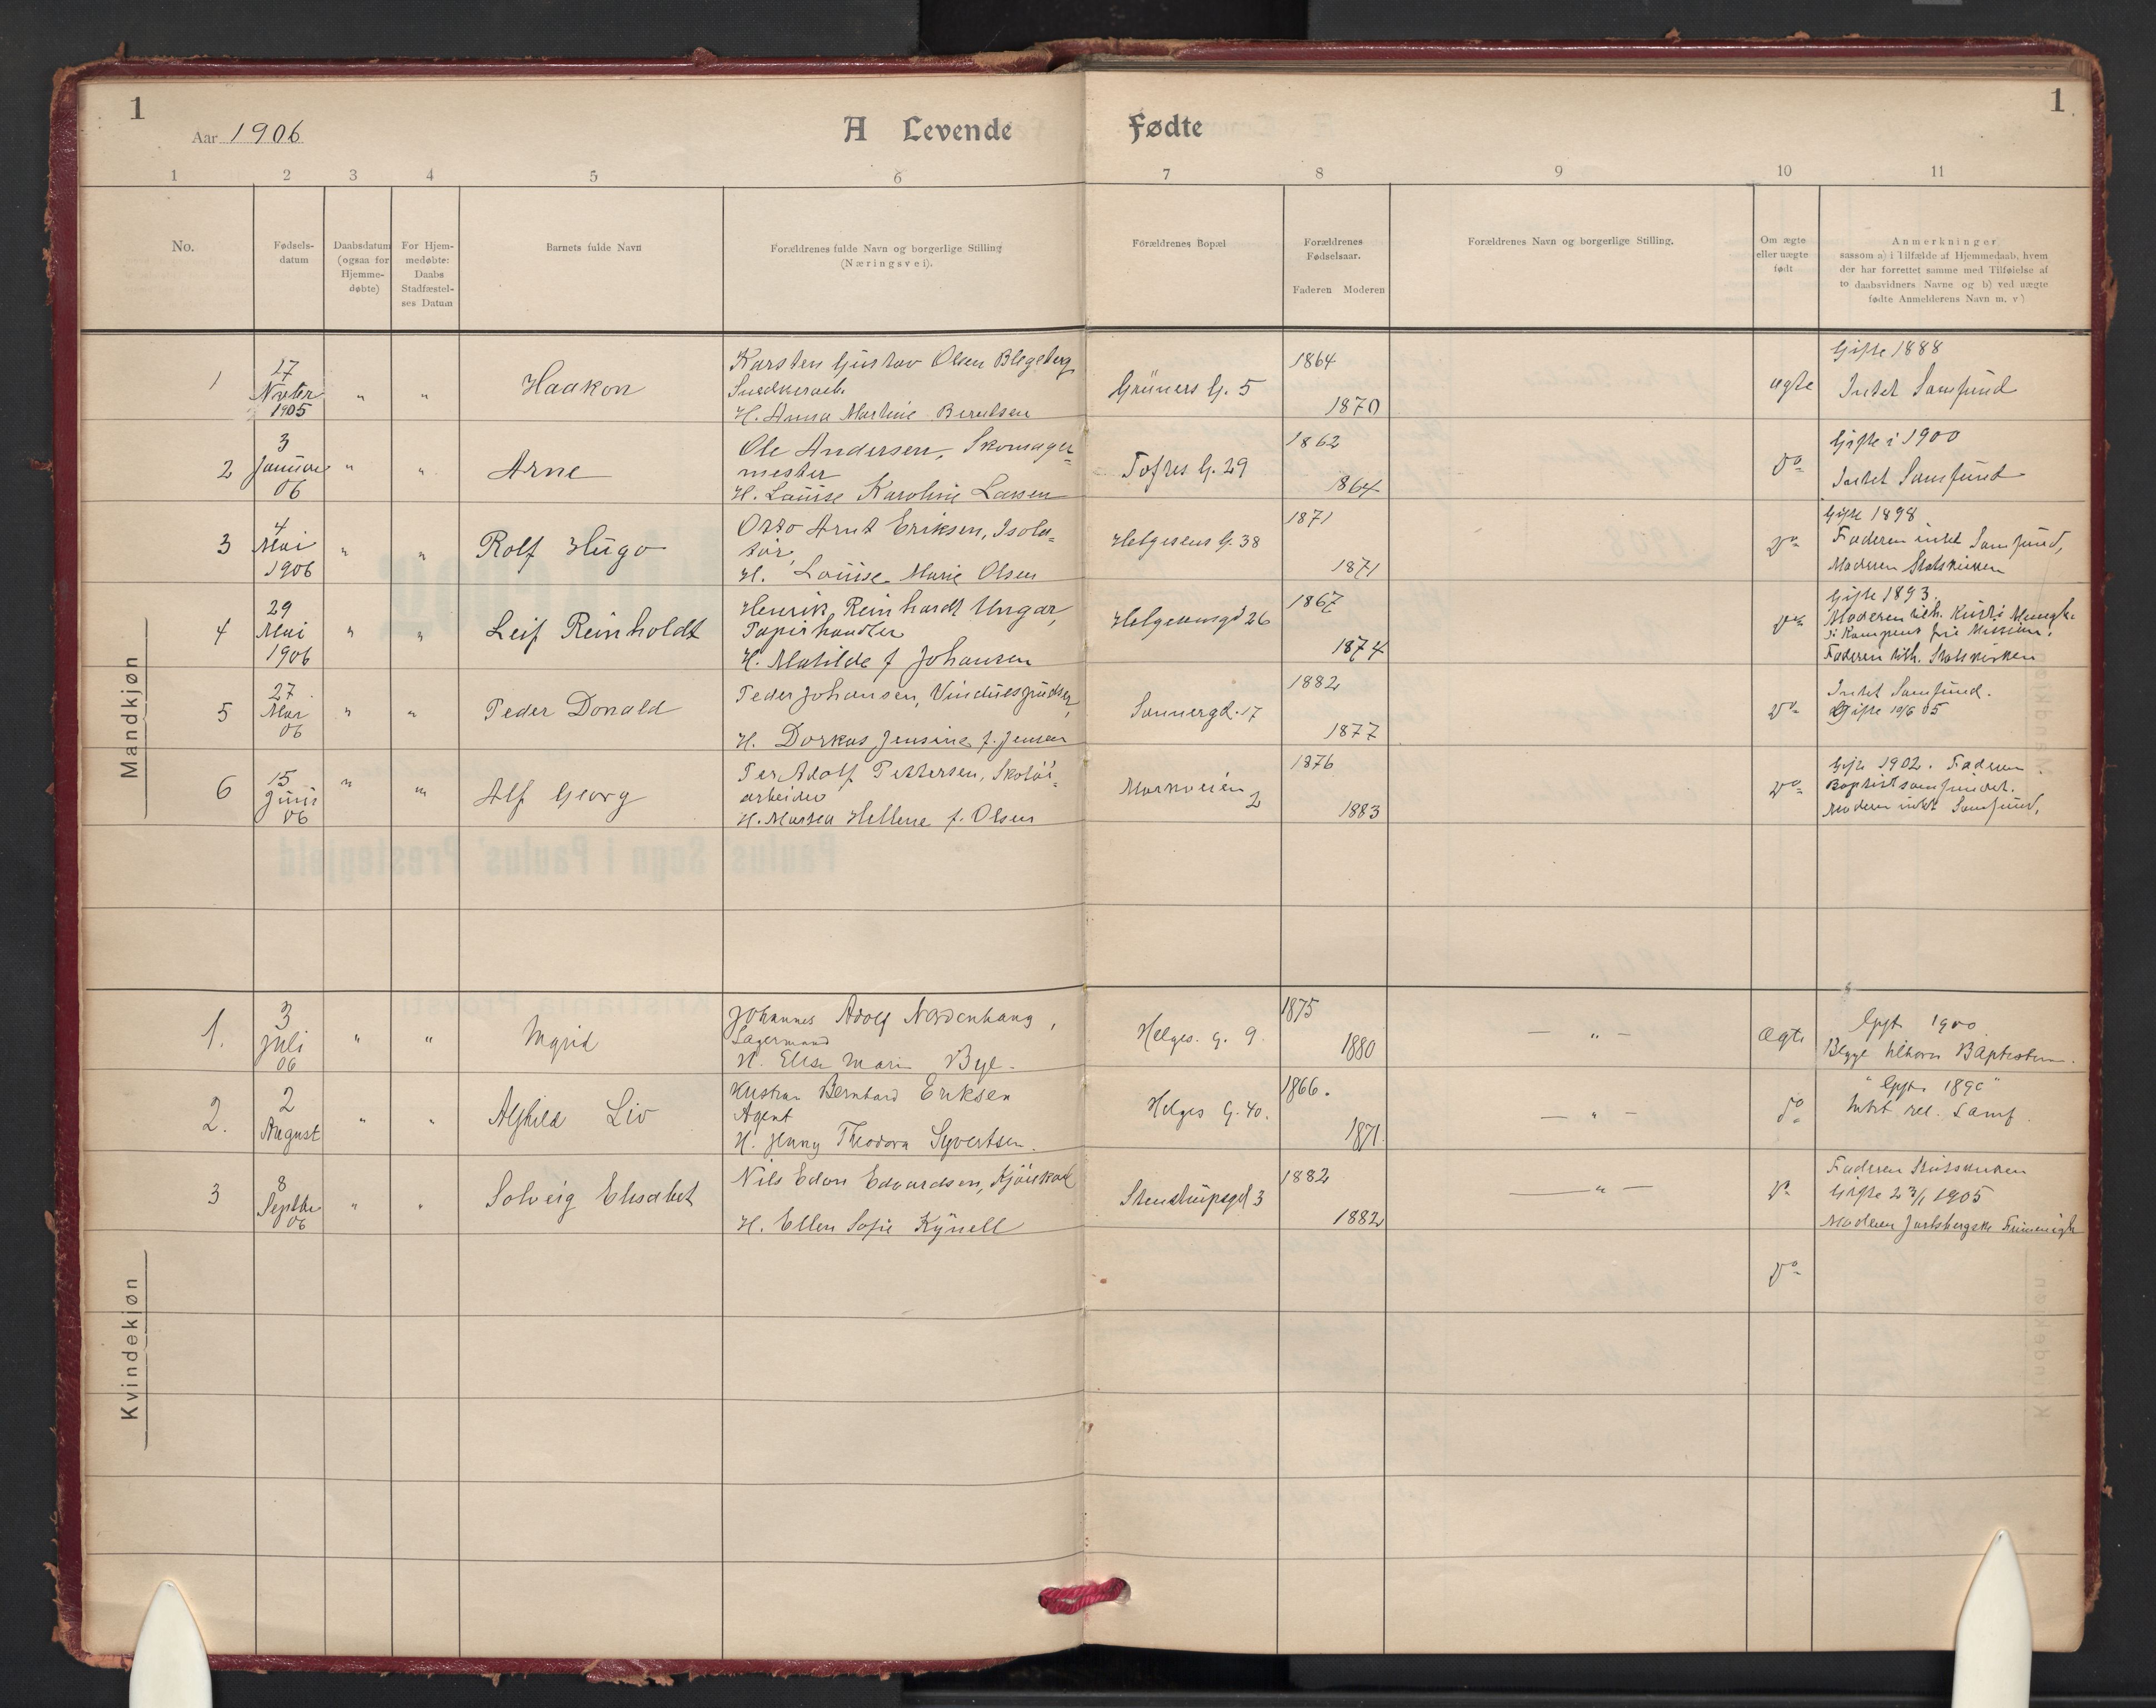 1
Aar 1906
A Levende Fødte
1
1 2 3 4 5 6 7 8 9 10 11
No.
Fødsels-
datum
Daabsdatum
(ogsaa for
Hjemme-
døbte)
For Hjem-
medøbte:
Daabs
Stadfæstel-
ses Datum
Barnets fulde Navn
Forældrenes fulde Navn og borgerlige Stilling
(Næringsvei).
Forældrenes Bopæl
Forældrenes
Fødselsaar.
Faderen Moderen
Forældrenes Navn og borgerlige Stilling.
Om ægte
eller uægte
født
Anmerkninger,
saasom a) i Tilfælde af Hjemmedaab, hvem
der har forrettet samme med Tilføielse af
to daabsvidners Navne og b) ved uægte
fødte Anmelderens Navn m. v)
Mandkjøn
1
17
Novbr
1905
" "
Haakon
Karsten Gustav Olsen
Snedkerarb.
H. Anna Martine Berntsen
Grüners G. 5
1864
1870
ægte
Gifte 1888
Intet Samfund
2
3
Januar
06
" "
Arne
Ole Andersen, Skomager=
mester
H. Louise Karoline Larsen
Toftes G. 29
1862
1864
Do
Gifte i 1900
Intet Samfund
3
4
Mai
1906
" "
Rolf Hugo
Otto Arnt Eriksen, Isola=
tør,
H. Louise Marie Olsen
Helgesens G. 38
1871
1871
Do
Gifte 1898
Faderen intet Samfund,
Moderen Statskirken
4
29
Mai
1906
" "
Leif Reinholdt
Henrik Reinhardt Ungar,
Papirhandler
H. Matilde f Johansen
Helgesensgd 26
1867
1874
Do
Gifte 1893.
Moderen tilh. Kristi Menigh.
i Kampens frie Mission.
Faderen tilh. Statskirken
5
27
Mar
06
" "
Peder Donald
Peder Johansen, Vinduespudser,
H. Dorkas Jensine f. Jensen
Sannergd. 17
1882
1877
Do
Intet Samfund.
Gifte 10/6 05
6
15
Juni
06
" "
Alf Georg
Per Adolf Pettersen, Skotøi=
arbeider
H. Martea Hellene f. Olsen
Markveien 2
1876
1883
Do
Gifte 1902. Faderen
Baptistsamfundet.
Moderen intet Samfund.
Kvindekjøn
1.
3
Juli
06
" "
Ingrid
Johannes Adolf Nordenhaug,
Lagermand
H. Elise Marie Bye.
Helges. G. 9.
1875
1880
— " —
Ægte
Gift 1900
Begge tilhører Baptisterne.
2.
2
August
" "
Alfhild Liv
Kristian Bernhard Eriksen
Agent
H. Jenny Theodora Syvertsen.
Helges G. 40.
1866.
1871.
— " —
do
" Gift 1890 "
Intet rel. Samf.
3
8
Septbr
06
" "
Solveig Elisabet
Nils Edon Edvardsen,
H. Ellen Sofie Kynell
Stenstrupsgd 3
1882
1882
— " —
Do
Faderen Statskirken
Gifte 23/1 1905
Moderen Jarlsbergske Frimenigh
Do